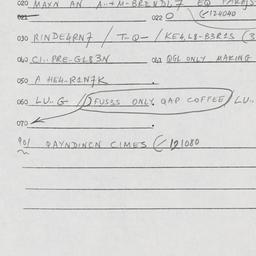 020 MAXN AN A..+M-BRENDL7 EQ
021 022 O (/124040
030 RINDE4RN7 / T-Q- / KE4,L8-B3R1S (3
040 CI..PRE-GL83N 041 QGL ONLY MAKING
050 A HE4L-R1N7K
060 LU.. G (FUSSS ONLY QAP COFFEE) LU..
070
901 QAYNDINCN CIMES (/121080